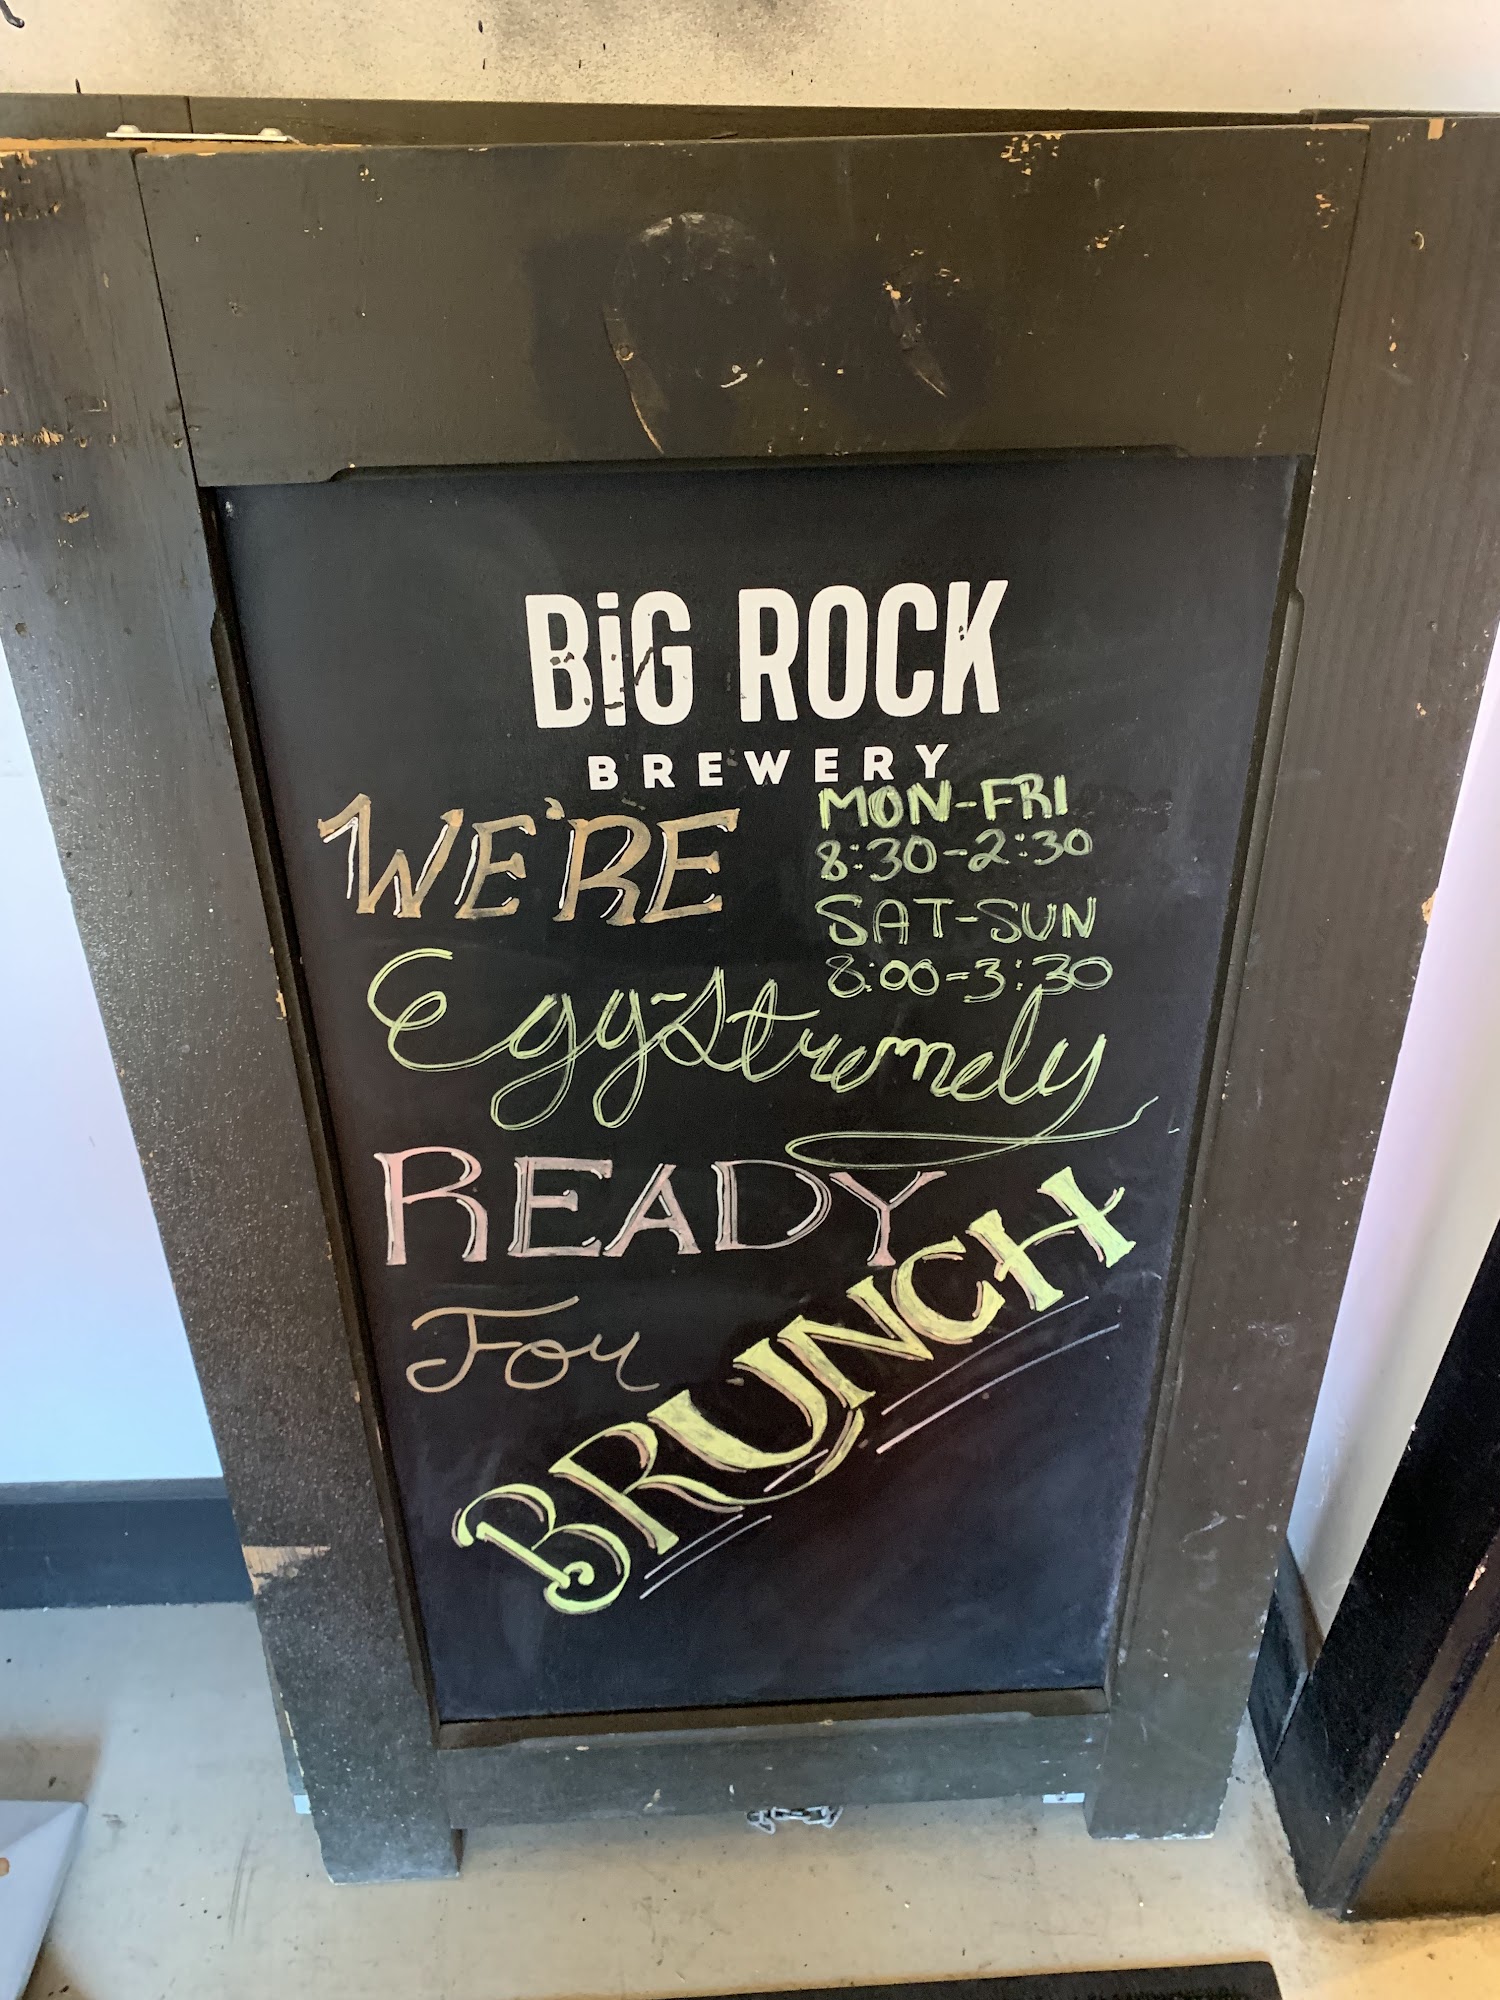 BiG ROCK
BREWERY
WE'RE
MON-FRI
8:30-2:30
SAT-SUN
8:00-3:30
Egg-Stremely
READY
For
BRUNCH